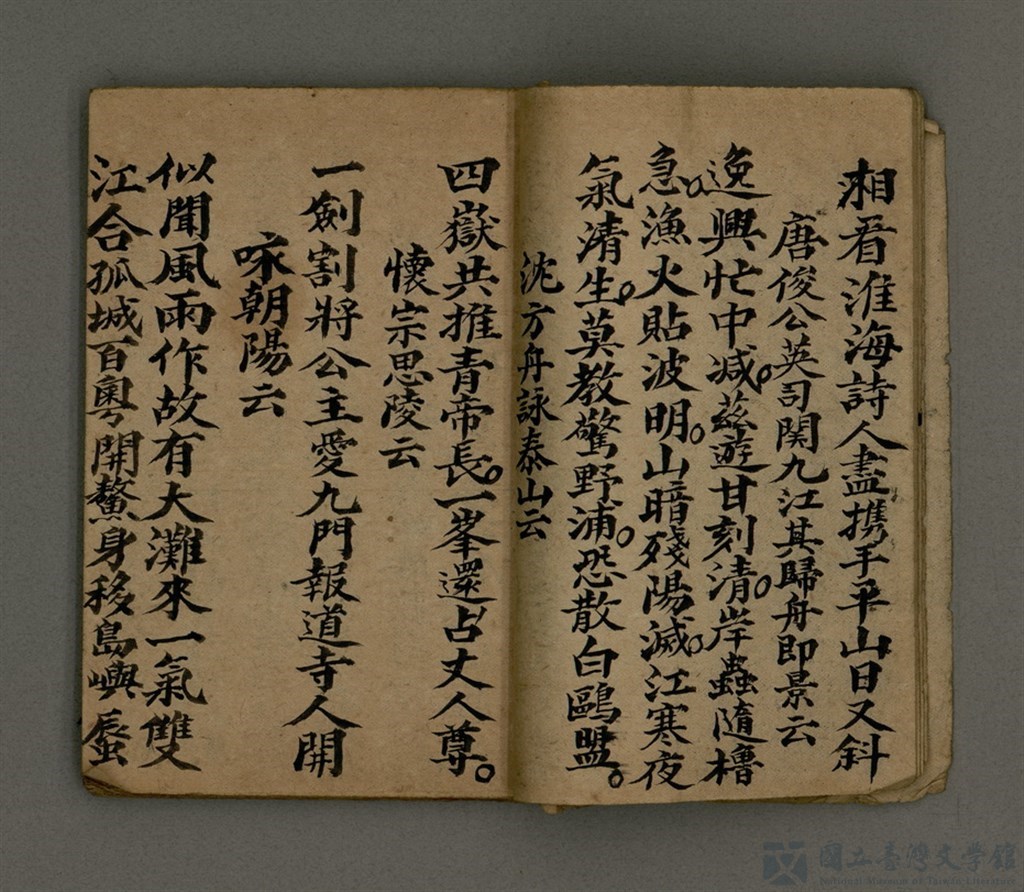 湘看淮海詩人盡携手平山日又斜
唐俊公英司関九江其歸舟即景云
逸興忙中减。茲遊甘刻清。岸蟲隨櫓
急。漁火貼波明。山暗殘陽滅。江寒夜
氣清生。莫教驚野浦。恐散白鷗盟。
沈方舟詠泰山云
四嶽共推青帝長。一峯還占丈人尊。
懷宗思陵云
一劍割將公主愛九門報道寺人開
咏朝陽云
似聞風雨作故有大灘來一氣雙
江合孤城百粵開鰲身移島嶼蜃
國立臺灣文学館
National Museum of Taiwan Literature